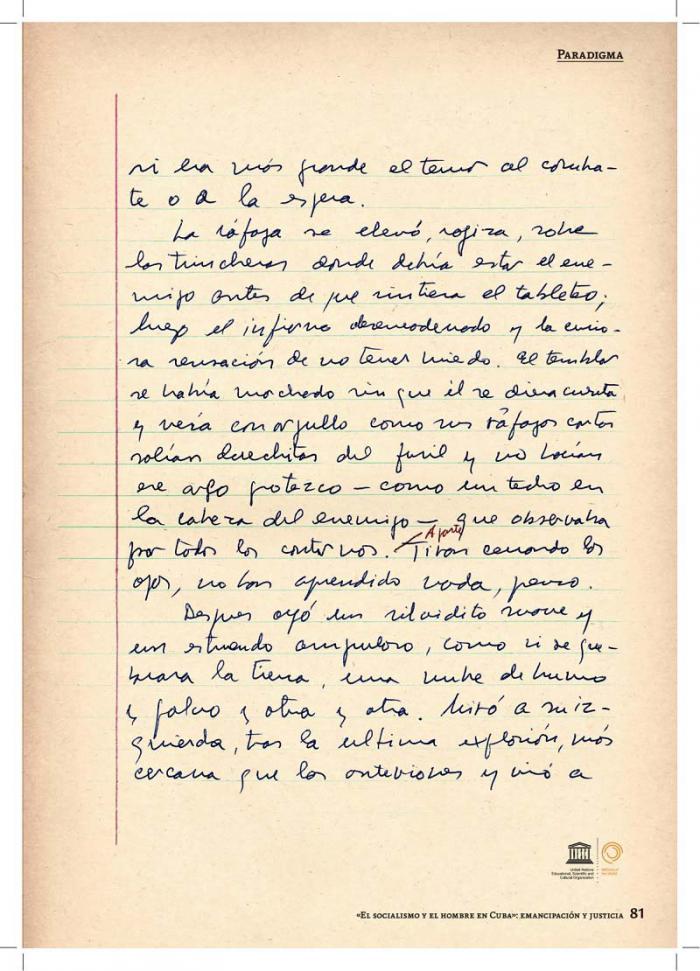 PARADIGMA
si era más grande el temor al comba-
te o a la espera.
La ráfaga se elevó, rojiza, sobre
las trincheras donde debía estar el ene-
migo antes de que sintiera el tableteo;
luego el infierno desencadenado y la curio-
sa sensación de no tener miedo. El temblor
se había marchado sin que él se diera cuenta
y veía con orgullo como sus ráfagas cortas
salían derechitas del fusil y no hacían
ese arco grotezco — como un techo en
la cabeza del enemigo — que observaba
Aparte
por todos los contornos. Tiran cerrando los
ojos, no han aprendido nada, penso.
Despues oyó un silvidito suave y
un estruendo ampuloso, como si se que-
brara la tierra, una nube de humo
y polvo y otra y otra. Miró a su iz-
quierda, tras la ultima explosión, más
cercana que las anteriores y vió a
United Nations
Educational, Scientific and
Cultural Organization
«EL SOCIALISMO Y EL HOMBRE EN CUBA»: EMANCIPACIÓN Y JUSTICIA 81